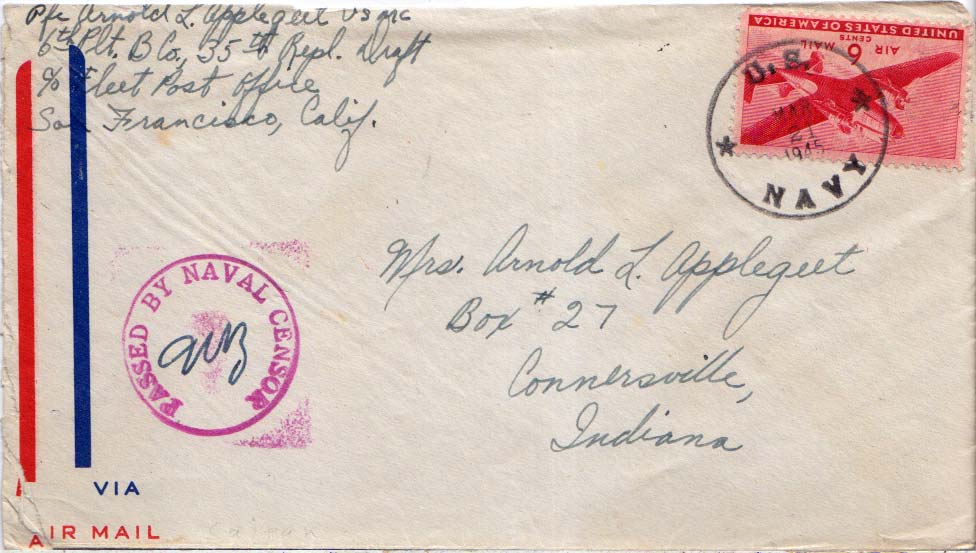 Pfc Arnold L. Applegeet USMC
6th Plt. B Co., 35th Repl. Draft
c/o Fleet Post Office
San Francisco, Calif.
UNITED STATES OF AMERICA
AIR MAIL
6 CENTS
U.S. NAVY
MAR
21
1945
Mrs. Arnold L. Applegeet
Box #27
Connersville,
Indiana
PASSED BY NAVAL CENSOR
VIA
AIR MAIL